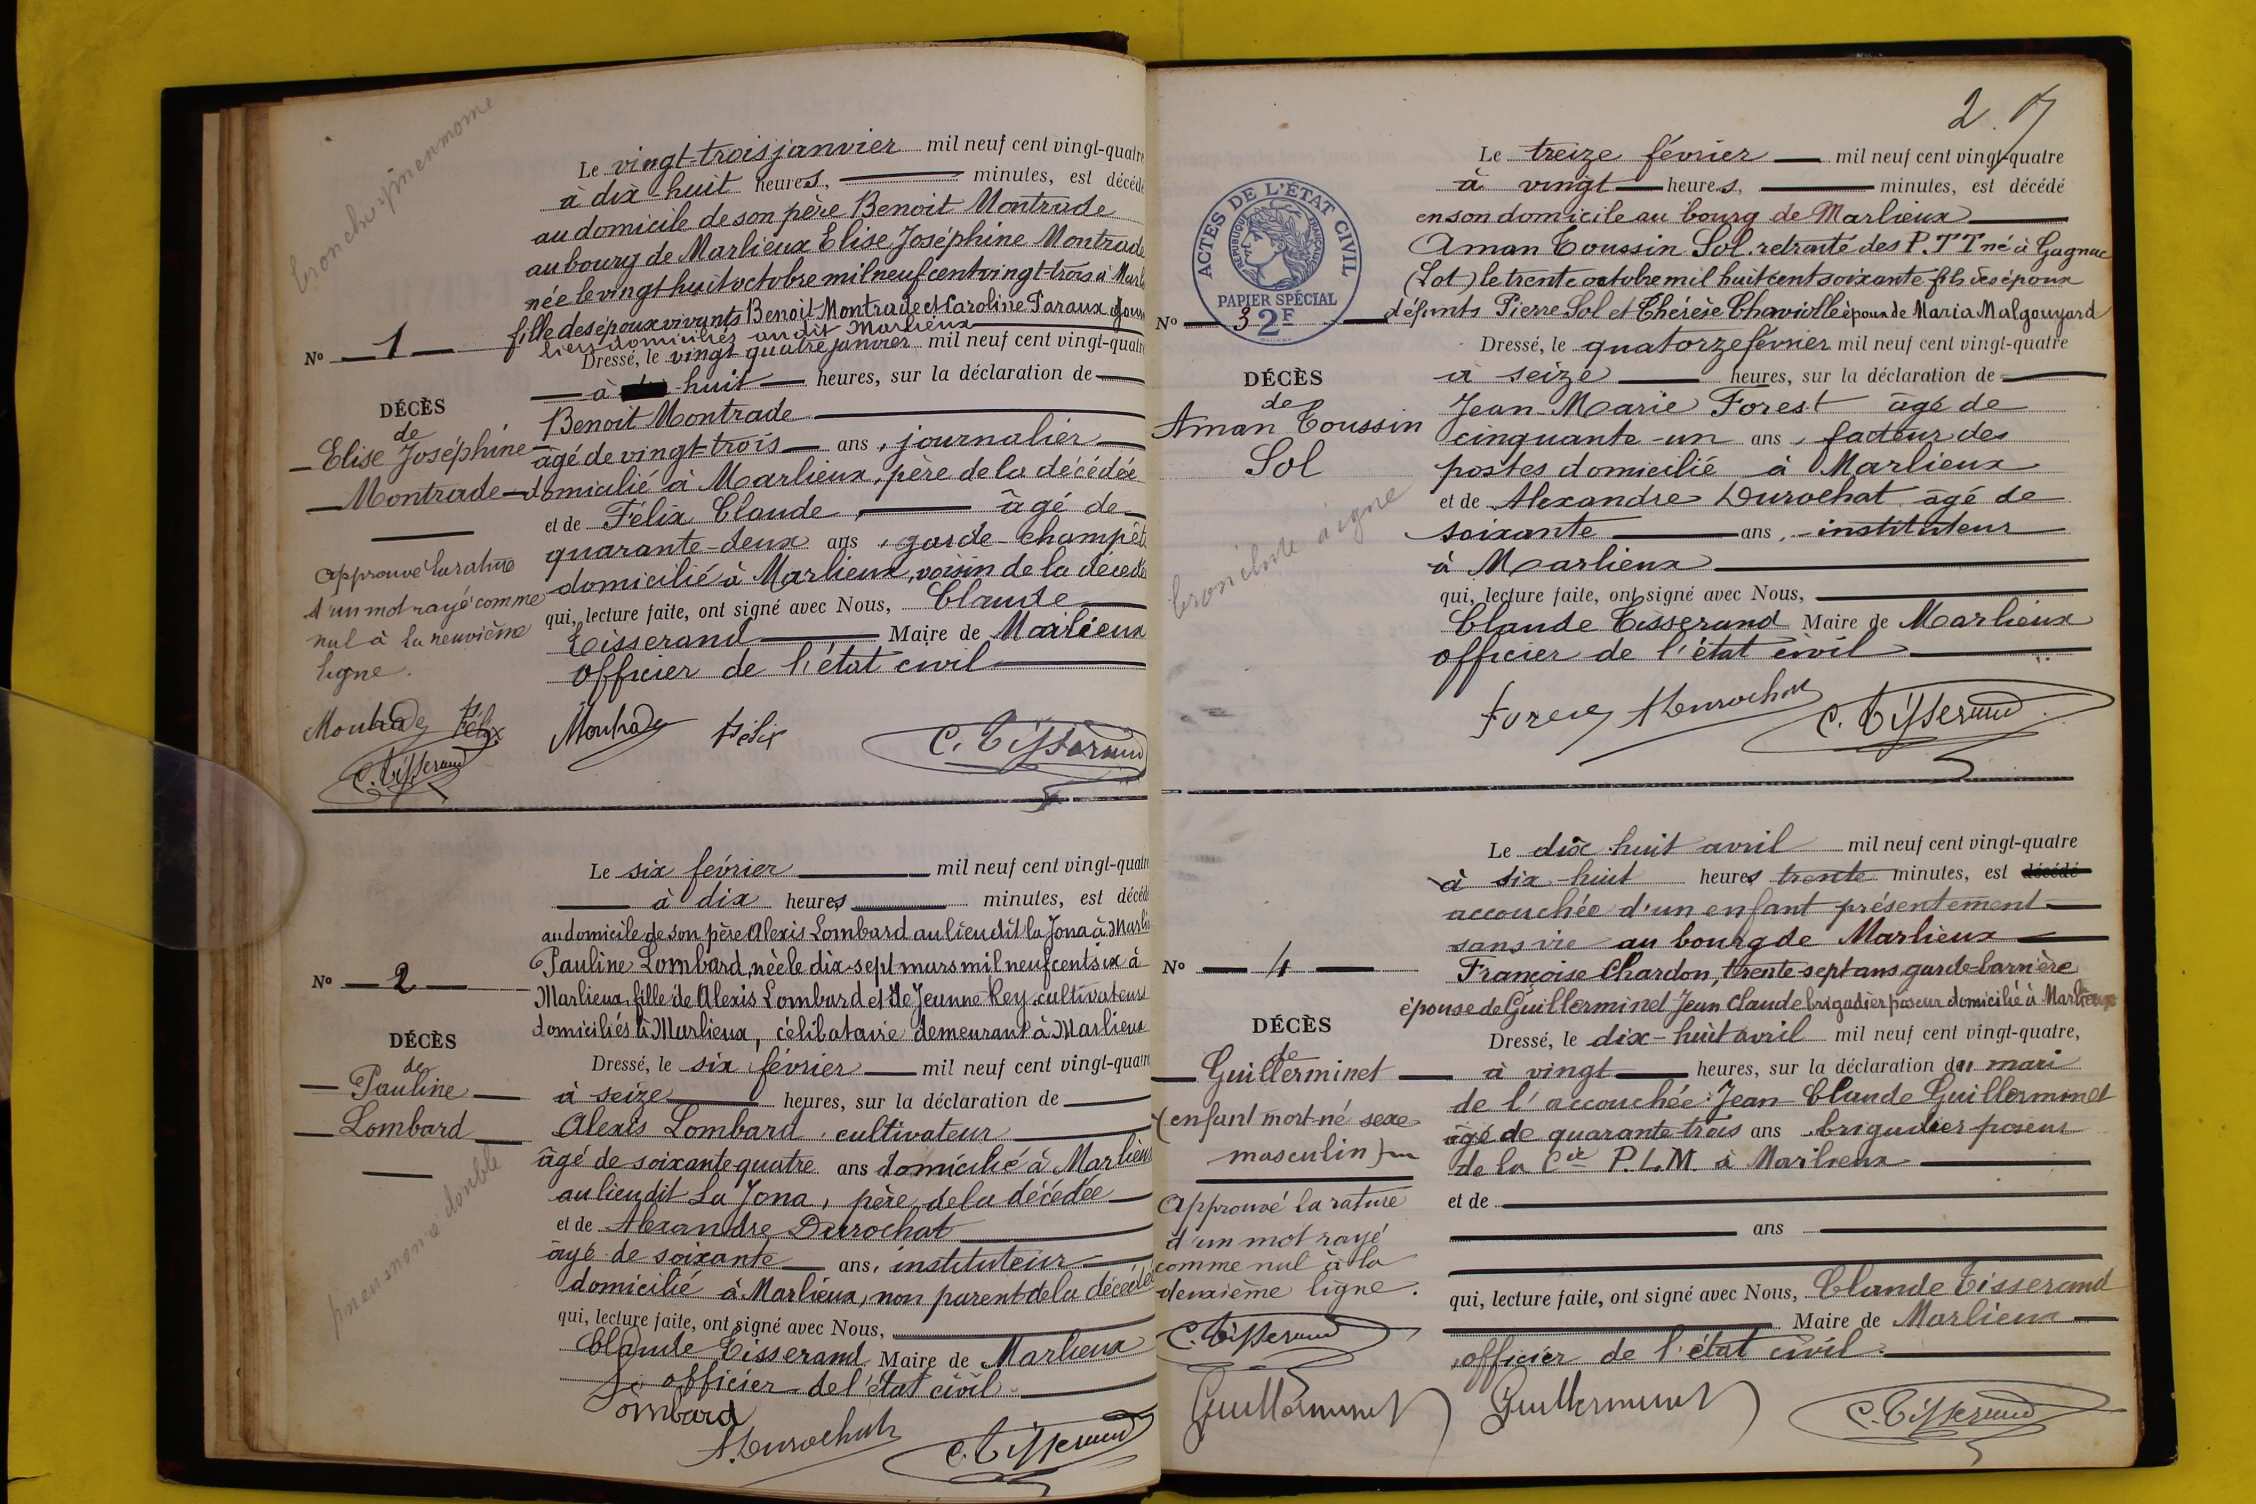 Le vingt-trois janvier mil neuf cent vingt-quatre
à dix huit heures, minutes, est décédé
au domicile de son père Benoit Montrade
au bourg de Marlieux Elise Joséphine Montrade
née le vingt huit octobre mil neuf cent vingt-trois à Marli
fille des époux vivants Benoit Montrade et Caroline Paraux Jour
liers domiciliés audit Marlieux
Dressé, le vingt quatre janvier mil neuf cent vingt-quatre
à huit heures, sur la déclaration de
Benoit Montrade
âgé de vingt-trois ans, journalier
domicilié à Marlieux, père de la décédée
et de Félix Claude, âgé de
quarante-deux ans, garde-champêt
domicilié à Marlieux, voisin de la décédée
qui, lecture faite, ont signé avec Nous, Claude
Tisserand Maire de Marlieux
officier de l'état civil
N° 1
DÉCÈS
de
Elise Joséphine
Montrade
approuvé la rature
d'un mot rayé comme
nul à la neuvième
ligne.
Montrade Félix
C. Tisserand
Montrade Félix C. Tisserand
Le six février mil neuf cent vingt-quatre
à dix heures minutes, est décédé
au domicile de son père Alexis Lombard au lieu dit la Jona à Marli
Pauline Lombard, née le dix-sept mars mil neuf cent six à
Marlieux, fille de Alexis Lombard et de Jeanne Rey cultivateurs
domiciliés à Marlieux, célibataire demeurant à Marlieux
Dressé, le six février mil neuf cent vingt-quatre
à seize heures, sur la déclaration de
Alexis Lombard, cultivateur
âgé de soixante quatre ans domicilié à Marlieux
au lieu dit La Jona, père de la décédée
et de Alexandre Durochat
âgé de soixante ans, instituteur
domicilié à Marlieux, non parent de la décédée
qui, lecture faite, ont signé avec Nous,
Claude Tisserand Maire de Marlieux
officier de l'état civil
N° 2
DÉCÈS
de
Pauline
Lombard
pneumonie double
Lombard
A. Durochat C. Tisserand
2
Le treize février mil neuf cent vingt-quatre
à vingt heures, minutes, est décédé
en son domicile au bourg de Marlieux
Aman Toussin Sol. retraité des P.T.T né à Gagnac
(Lot) le trente octobre mil huit cent soixante fils des époux
défunts Pierre Sol et Thérèse Chaviville époux de Maria Malgouyard
Dressé, le quatorze février mil neuf cent vingt-quatre
à seize heures, sur la déclaration de
Jean-Marie Forest âgé de
cinquante-un ans, facteur des
postes domicilié à Marlieux
et de Alexandre Durochat âgé de
soixante ans, instituteur
à Marlieux
qui, lecture faite, ont signé avec Nous,
Claude Tisserand Maire de Marlieux
officier de l'état civil
ACTES DE L'ÉTAT CIVIL
RÉPUBLIQUE FRANÇAISE
PAPIER SPÉCIAL
2F
N° 3
DÉCÈS
de
Aman Toussin
Sol
bronchite aigue
Forest A Durochat C. Tisserand
Le dix huit avril mil neuf cent vingt-quatre
à six huit heures trente minutes, est décédé
accouchée d'un enfant présentement
sans vie au bourg de Marlieux
Françoise Chardon, trente sept ans garde-barrière
épouse de Guillerminet Jean Claude brigadier poseur domicilié à Marlieux
Dressé, le dix-huit avril mil neuf cent vingt-quatre,
à vingt heures, sur la déclaration du mari
de l'accouchée: Jean Claude Guillerminet
âgé de quarante-trois ans brigadier poseur
de la Cie P.L.M. à Marlieux
et de
ans
qui, lecture faite, ont signé avec Nous, Claude Tisserand
Maire de Marlieux
officier de l'état civil.
N° 4
DÉCÈS
de
Guillerminet
(enfant mort-né sexe
masculin)
approuvé la rature
d'un mot rayé
comme nul à la
deuxième ligne.
C. Tisserand
Guillerminet Guillerminet C. Tisserand